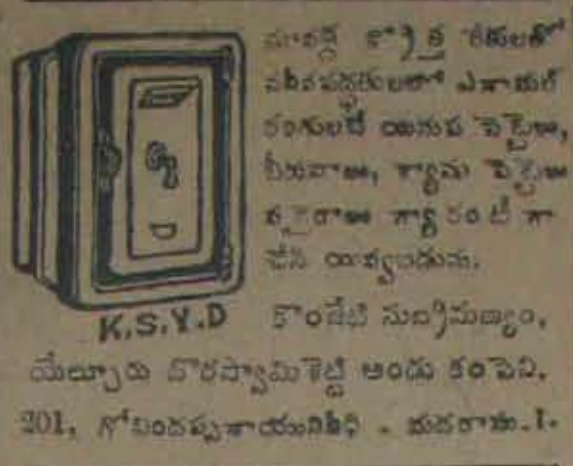 మావద్ద క్రొత్త రేకులతో
నవీనపద్ధతులలో ఎనామల్
రంగులతో యినుప పెట్టెలు,
బీరువాలు, క్యాషు పెట్టెలు
వగైరాలు గ్యారంటీగా
చేసి యివ్వబడును.
K.S.Y.D
కొంజేటి సుబ్రిమణ్యం,
యేల్చూరు దొరస్వామిశెట్టి అండు కంపెని.
201, గోవిందప్పనాయునివీధి - మదరాసు.1.